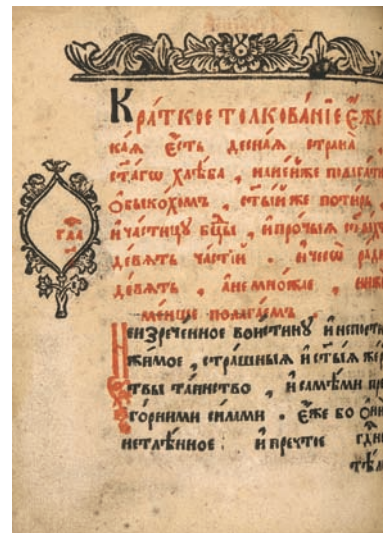 Кра́ткое толкова́нїе є҆́же
ка́ѧ є҆́сть десна́ѧ страна̀ ,
ст҃а́гѡ хлѣ́ба , на не́йже полага́ти
ѻ҆быко́хомъ , ст҃ы́й же поти́рь ,
и҆ части́цꙋ бц҃ы , и҆ про́чыѧ ст҃ы́хъ
де́вѧть ча́стїй . и҆ чесѡ̀ ра́ди
де́вѧть , а҆ не мно́жае ,
ме́нше полага́емъ .
гла҃
Неизрече́нное вои́стинꙋ и҆ непости
жи́мое , стра́шныѧ и҆ ст҃ы́ѧ же́р
твы та́инство , и҆ самѣ́ми пре
го́рними си́лами . є҆́же бо ѻ҆ни
нетлѣ́нное : и҆ пречⷭ҇тое гдⷭ҇не
тѣ́л